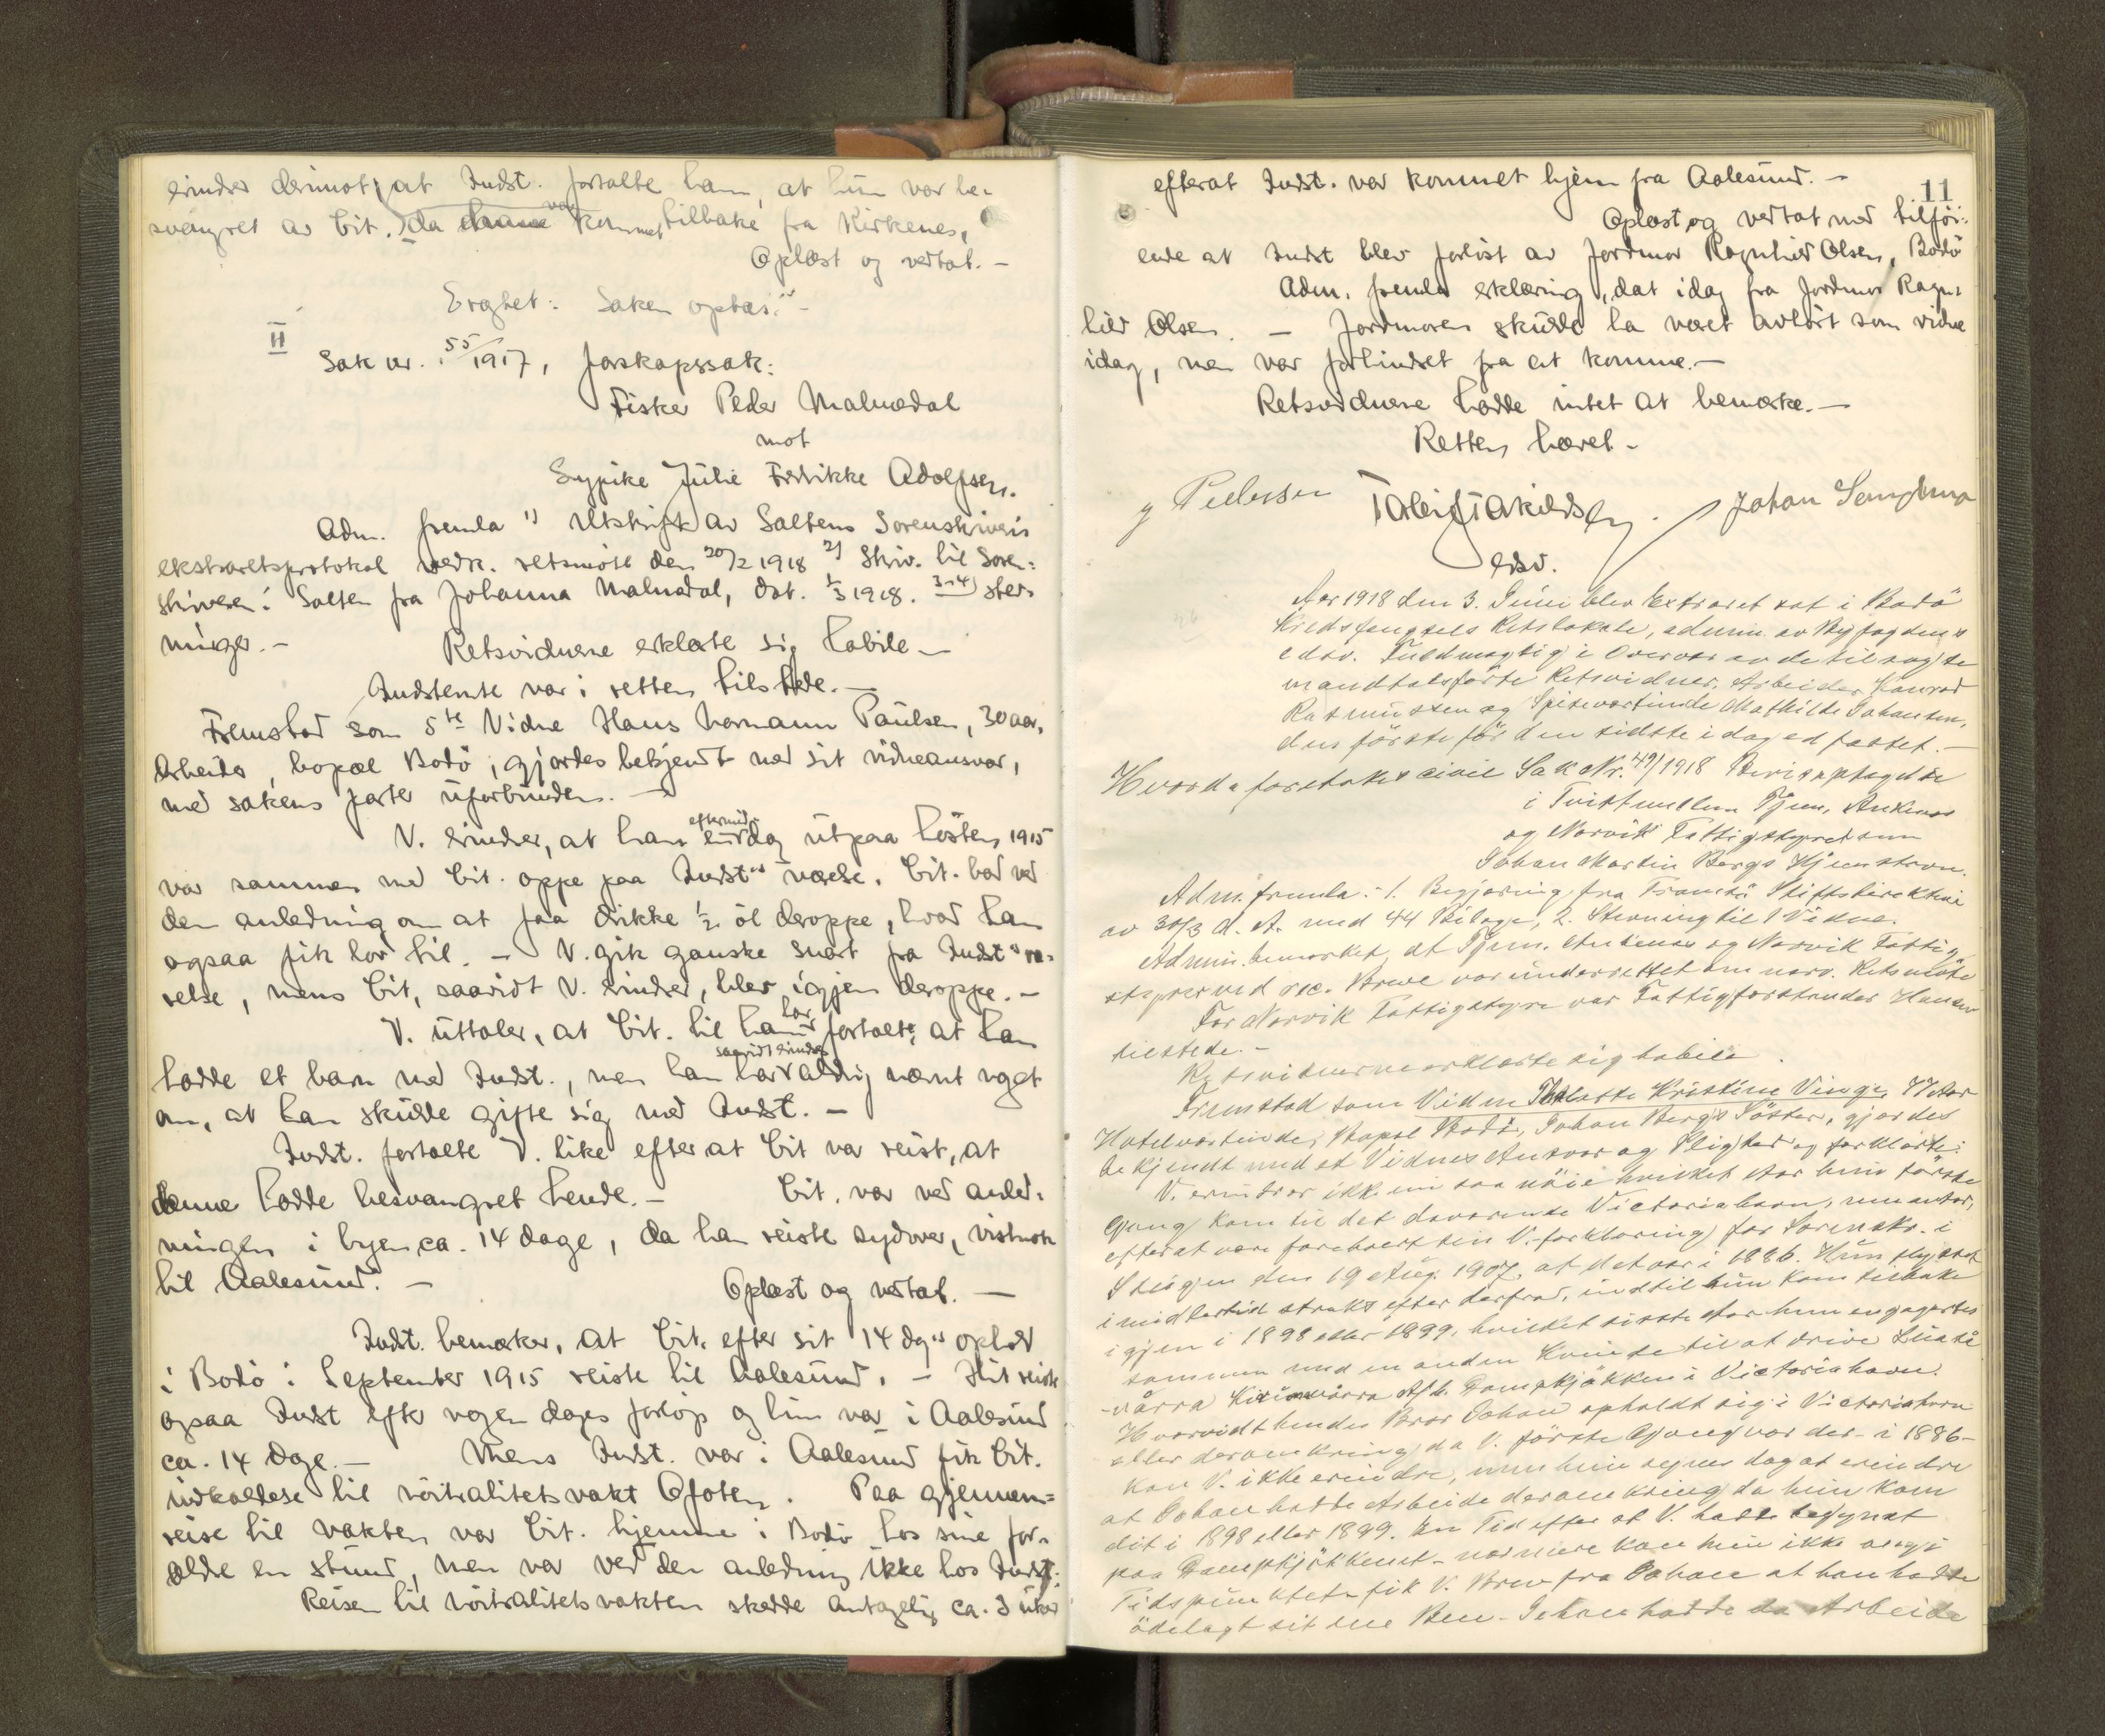 erindrer derimot, at Indst. fortalte ham, at hun var be-
svangret av Cit. da denne var kommet tilbake fra Kirkenes.
Oplæst og vedtat. –
Eragtet: Saken optas. –
II
Sak nr. 55/1917, farskapssak:
Fisker Peder Malnædal
mot
Sypike Julie Fredrikke Adolfsen.
Adm. fremla 1) Utskrift av Saltens Sorenskriveris
ekstraretsprotokol vedk. retsmöte den 20/2 1918 2) Skriv. til Soren=
skriveren i Salten fra Johanna Malnædal, dat. 1/3 1918. 3-4) stev-
ninger. –
Retsvidnene erklærte sig habile –
Indstevnte var i retten tilstede. –
Fremstod som 5te Vidne Hans Normann Paulsen, 30 aar,
Arbeider, bopæl Bodö, gjordes bekjendt med sit vidneansvar,
med sakens parter uforbunden. –
V. erindrer, at han en eftermiddag utpaa hösten 1915
var sammen med Cit. oppe paa Indst's værelse. Cit. bad ved
den anledning om at faa drikke 1/2 öl deroppe, hvad han
ogsaa fik lov til. – V. gik ganske snart fra Indst's væ-
relse, mens Cit, saavidt V. erindrer, blev igjen deroppe. –
V. uttaler, at Cit. til ham har fortalt, at han
hadde et barn med Indst., men han har saavidt erindres aldrig nævnt noget
om, at han skulde gifte sig med Indst. –
Indst. fortalte V. like efter at Cit var reist, at
denne hadde besvangret hende. – Cit. var ved anled-
ningen i byen ca. 14 dage, da han reiste sydover, vistnok
til Aalesund. –
Oplæst og vedtat. –
Indst. bemærker, at Cit. efter sit 14 dg's ophold
i Bodö i September 1915 reiste til Aalesund. – Hit reiste
ogsaa Indst efter nogen dages forlöp og hun var i Aalesund
ca. 14 dage. – Mens Indst. var i Aalesund fik Cit.
indkaldelse til nöitralitetsvakt Ofoten. Paa gjennem=
reise til vakten var Cit. hjemme i Bodö hos sine for-
ældre en stund, men var ved den anledning ikke hos Indst.
Reisen til nöitralitetsvakten skedde antagelig ca. 3 uker
11
efterat Indst. var kommet hjem fra Aalesund. –
Oplæst og vedtat med tilföi-
ende at Indst blev forlöst av Jordmor Ragnhild Olsen, Bodö
Adm. fremla erklæring, dat idag fra Jordmor Ragn-
hild Olsen. – Jordmoren skulde ha været avhört som vidne
idag, men var forhindret fra at komme. –
Retsvidnene hadde intet at bemærke. –
Retten hævet –
Pedersen
Johan
edsv.
Aar 1918 den 3. Juni blev Extraret sat i Bodö
Kredsfængsels Retslokale, admin. av Byfogdens
edsv. Fuldmægtig i Overvær av de tilsagte
mandtalsförte Retsvidner, Arbeider Konrad
Rasmussen og Spisevertinde Mathilde Johansen,
den förste för den sidste idag edfæstet. –
Hvorda foretokes civil Sak Nr. 49/1918 Bevisoptagelse
i Tvist mellem Tjem. Ankenes
og Narvik Fattigstyrer om
Johan Martin Bergs Hjemstavn.
Adm. fremla: 1. Begjæring fra Tromsö Stiftsdirektion
av 30/3 d. A. med 44 Bilage, 2. Stevning til 1 Vidne.
Admin. bemerket, at Tjem. Ankenes og Narvik Fattig-
styrer ved rec. Breve var underrettet om nærv. Retsmöte
For Narvik Fattigstyre var Fattigforstander Hansen
tilstede. –
Retsvidnerne erklærte sig habile.
Fremstod som Vidne Kristine Vinge, Aar
Hotelvertinde, Bopæl Bodö, Johan Bergs Söster, gjordes
bekjendt med et Vidnes Ansvar og Pligter og forklarte:
V. erindrer ikke nu saa nöie hvilket Aar hun förste
Gang kom til det daværende Victoriahavn, men antar,
efter at være foreholdt sin V. forklaring for Sorenskr. i
Steigen den 19 Aug. 1907, at det var i 1886. Hun flyttet
imidlertid straks efter derfra, indtil hun kom tilbake
igjen i 1898 eller 1899, hvilket sidste Aar hun engagertes
sammen med en anden Kvinde til at drive Luosa-
vårra Kirunavårra A/b. Dampkjökken i Victoriahavn.
Hvorvidt hendes Bror Johan opholdt sig i Victoriahavn
eller deromkring da V. förste Gang var der – i 1886 –
kan V. ikke erindre, men hun synes dog at erindre
at Johan hadde Arbeide deromkring da hun kom
dit i 1898 eller 1899. En Tid efter at V. hadde begynt
paa Dampkjökkenet – nærmere kan hun ikke angi
Tidspunktet – fik V. Brev fra Johan at han hadde
ödelagt sit ene Ben – Johan hadde da Arbeide